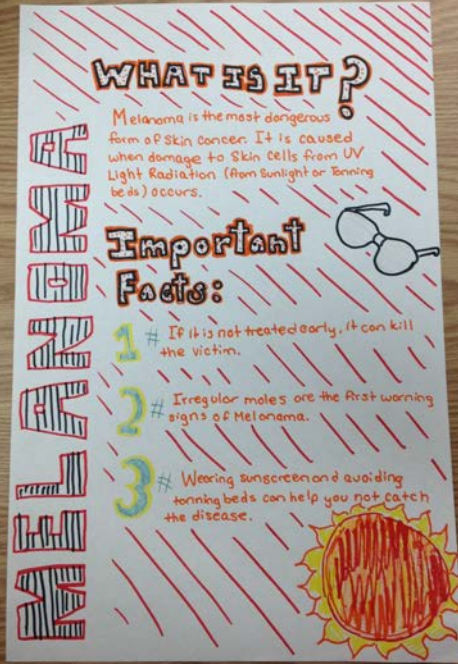 MELANOMA
WHAT IS IT?
Melanoma is the most dangerous
form of skin cancer. It is caused
when damage to skin cells from UV
Light Radiation (from Sunlight or Tanning
beds) occurs.
Important
Facts:
1# If it is not treated early, it can kill
the victim.
2# Irregular moles are the first warning
signs of Melanoma.
3# Wearing sunscreen and avoiding
tanning beds can help you not catch
the disease.